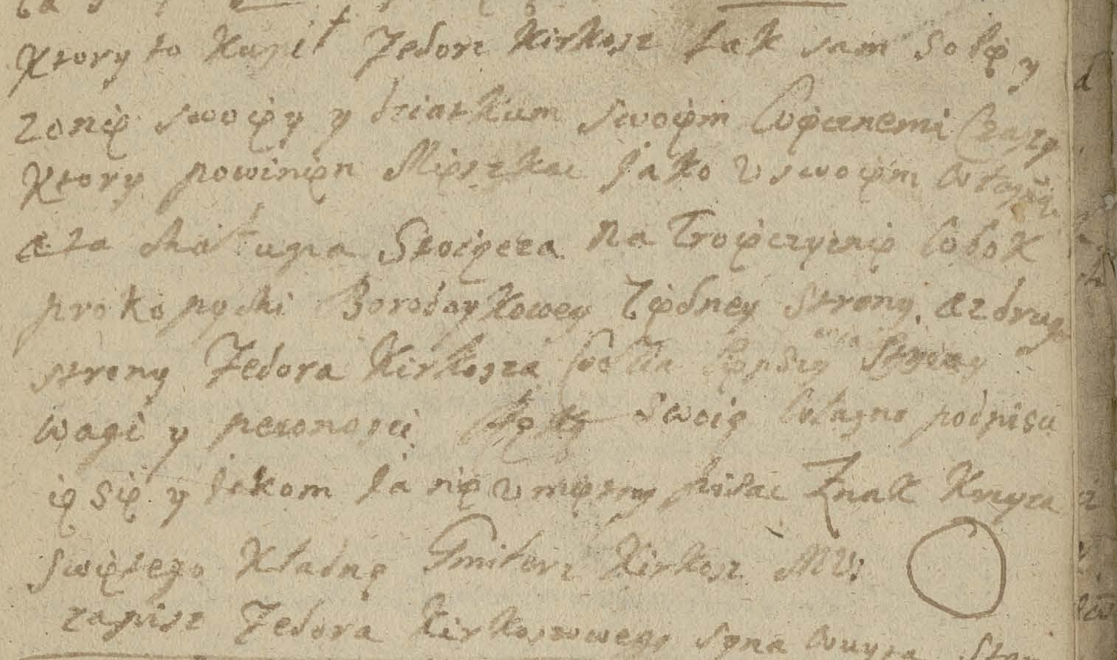 Ktory to Kupił Fedorz Kirkosz tak sam sobię y
zonię swoięy y dziatkum swoięm Więcznemi Czasy
Ktory powinięn Mięszkac Jako v swoięm własn
a za chałupa Stoięcza Na Troięczyznię Wobok
prokopyski Borodaykowey ZIędney strony. a z drug
strony Fedora Kirkosza dla Lępszy strony
wagi y pewnosci Ręką swoię własno podpisu
ię się y Jakom Ja nię vmięętny pisac Znak Krzyza
swiętego Kładnę Gmiterz Kirkosz MW
zapisz Fedora Kirkoszowego syna